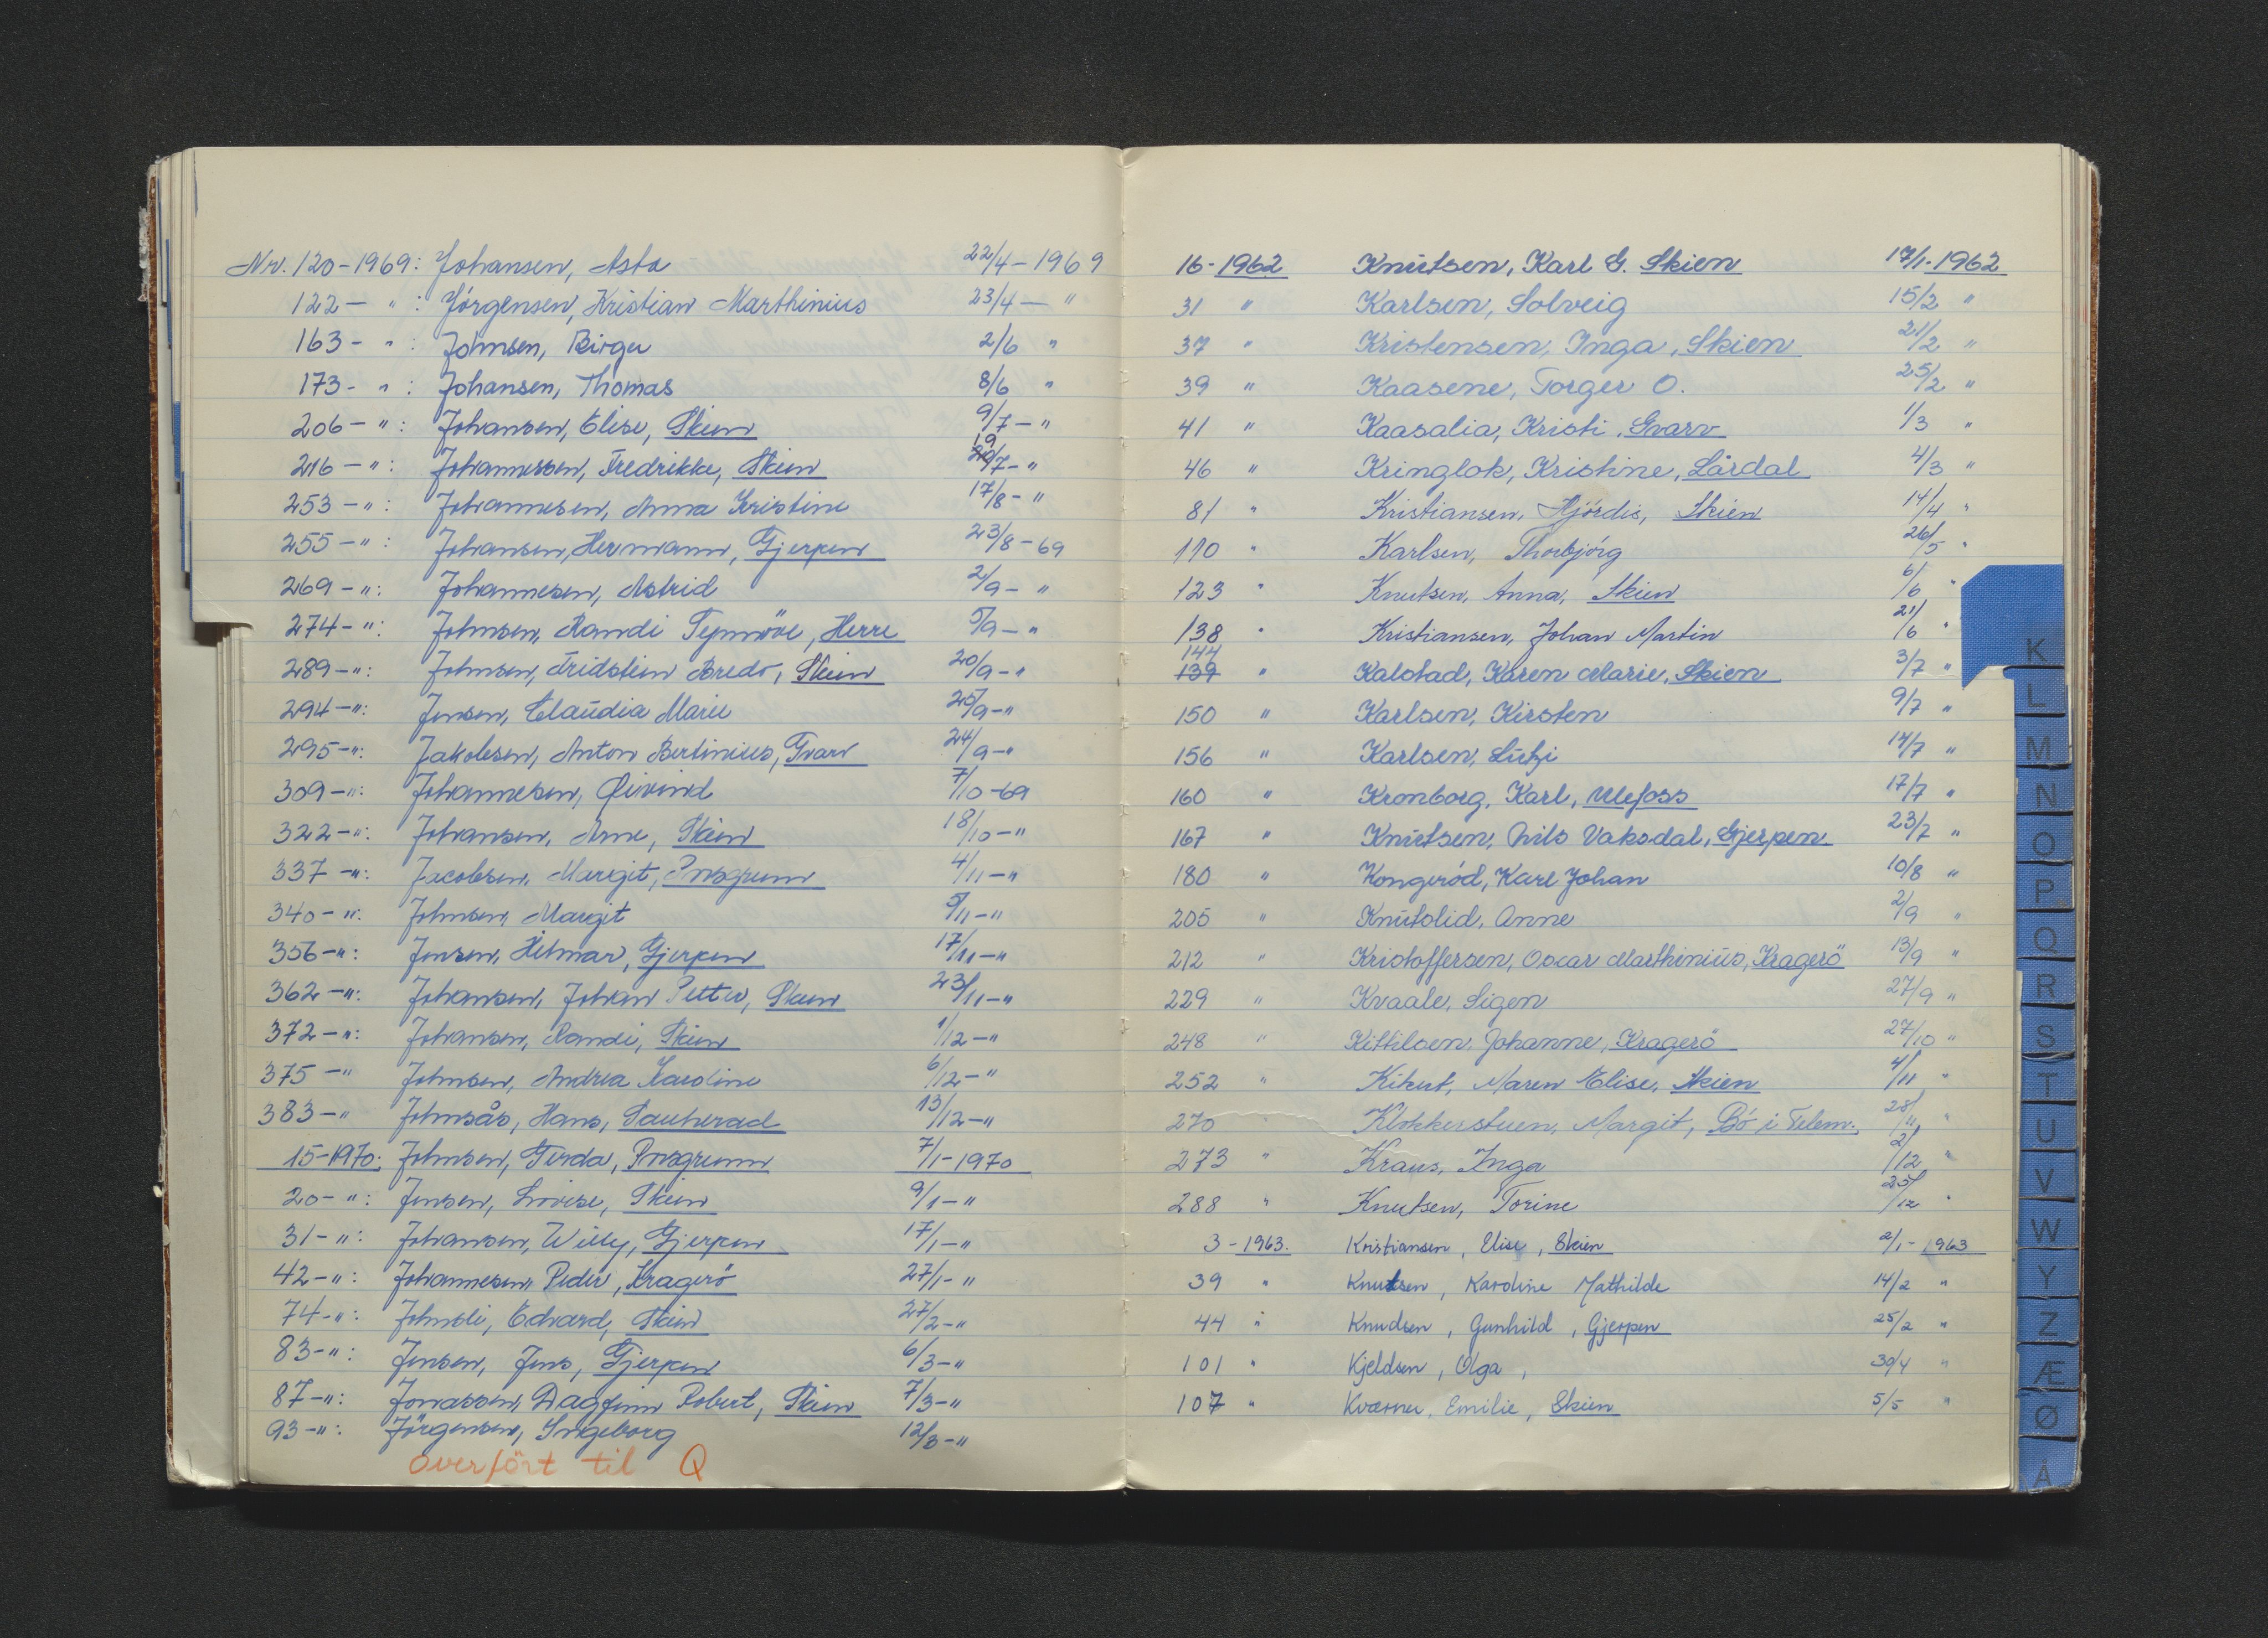 Nr. 120-1969: Johansen, Asta 22/4-1969
122- " : Jörgensen, Kristian Marthinius 23/4- "
163- " : Johnsen, Birger 2/6 "
173- " : Johansen, Thomas 8/6 "
206- " : Johansen, Elise, Skien 9/7- "
216- " : Johannessen, Fredrikke, Skien 19/7- "
253- " : Johannesen, Anna Kristine 17/8- "
255- " : Johansen, Hermann, Gjerpen 23/8-69
269- " : Johannesen, Astrid 2/9- "
274- " : Johnsen, Randi Synnöve, Herre 5/9- "
289- " : Johnsen, Fridstein Bredo, Skien 20/9- "
294- " : Jensen, Claudia Marie 25/9- "
295- " : Jakobsen, Anton Bertinius, Gvarv 24/9- "
309- " : Johannesen, Øivind 7/10-69
322- " : Johansen, Arne, Skien 18/10- "
337- " : Jacobsen, Margit, Porsgrunn 4/11- "
340- " : Johnsen, Margit 5/11- "
356- " : Jensen, Hilmar, Gjerpen 17/11- "
362- " : Johansen, Johan Petter, Skien 23/11- "
372- " : Johansen, Randi, Skien 1/12- "
375- " Johnsen, Andrea Karoline 6/12- "
383- " Johnsås, Hans, Sauherad 13/12- "
15-1970: Johnsen, Gerda, Porsgrunn 7/1-1970
20- " : Jensen, Lovise, Skien 9/1- "
31- " : Johansen, Willy, Gjerpen 17/1- "
42- " : Johannesen, Peder, Kragerö 27/1- "
74- " : Johnsli, Edvard, Skien 27/2- "
83- " : Jensen, Jens, Gjerpen 6/3- "
87- " : Jonassen, Dagfinn Robert, Skien 7/3- "
93- " : Jörgensen, Ingeborg 12/3- "
overfört til Q
16-1962 Knutsen, Karl G. Skien 17/1-1962
31 " Karlsen, Solveig 15/2 "
37 " Kristensen, Inga, Skien 21/2 "
39 " Kaasene, Torger O. 25/2 "
41 " Kaasalia, Kristi, Gvarv 1/3 "
46 " Kringlok, Kristine, Lårdal 4/3 "
81 " Kristiansen, Hjördis, Skien 14/4 "
110 " Karlsen, Thorbjórg 26/5 "
123 " Knutsen, Anna, Skien 6/6 "
138 " Kristiansen, Johan Martin 21/6 "
144 139 " Kalstad, Karen Marie, Skien 3/7 "
150 " Karlsen, Kirsten 9/7 "
156 " Karlsen, 14/7 "
160 " Kronborg, Karl, Ulefoss 17/7 "
167 " Knutsen, Nils Vaksdal, Gjerpen 23/7 "
180 " Kongeród, Karl Johan 10/8 "
205 " Knutslid, Anne 2/9 "
212 " Kristoffersen, Oscar Marthinius, Kragerö 13/9 "
229 " Kvaale, Sigen 27/9 "
248 " Kittilsen, Johanne, Kragerö 27/10 "
252 " Kikut, Maren Elise, Skien 4/11 "
270 " Klokkerstuen, Margit, Bó i Telem. 28/11 "
273 " Kraus, Inga 2/12 "
288 " Knutsen, Torine 25/12 "
3-1963. Kristiansen, Elise, Skien 2/1-1963
39 " Knutsen, Karoline Mathilde 14/2 "
44 " Knudsen, Gunhild, Gjerpen 25/2 "
101 " Kjeldsen, Olga, 30/4 "
107 " Kværner, Emilie, Skien 5/5 "
K
L
M
N
O
P
Q
R
S
T
U
V
W
Y
Z
Æ
Ø
Å